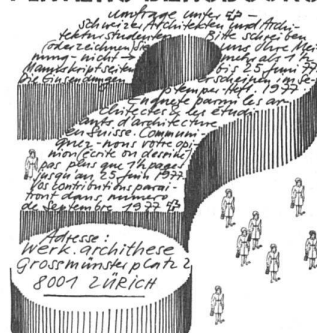 Umfrage unter
schweizer Architekten und Archi-
tekturstudenten Bitte schreiben
(oder zeichnen) Sie uns Ihre Mei-
nung - nicht mehr als 1½
Manuskriptseiten bis 25. Juni 77
die Einsendungen erscheinen im Sep-
temperheft. 1977
Enquête parmi les ar-
chitectes & les étudi-
ants d'architecture
en Suisse. Communi-
quez-nous votre opi-
nion (écrite ou dessinée
pas plus que 1½ pages
jusqu'au 25 Juin 1977
Vos contributions parai-
tront dans numéro
de Septembre 1977
Adresse:
werk.archithese
Grossmünsterplatz 2
8001 ZÜRICH